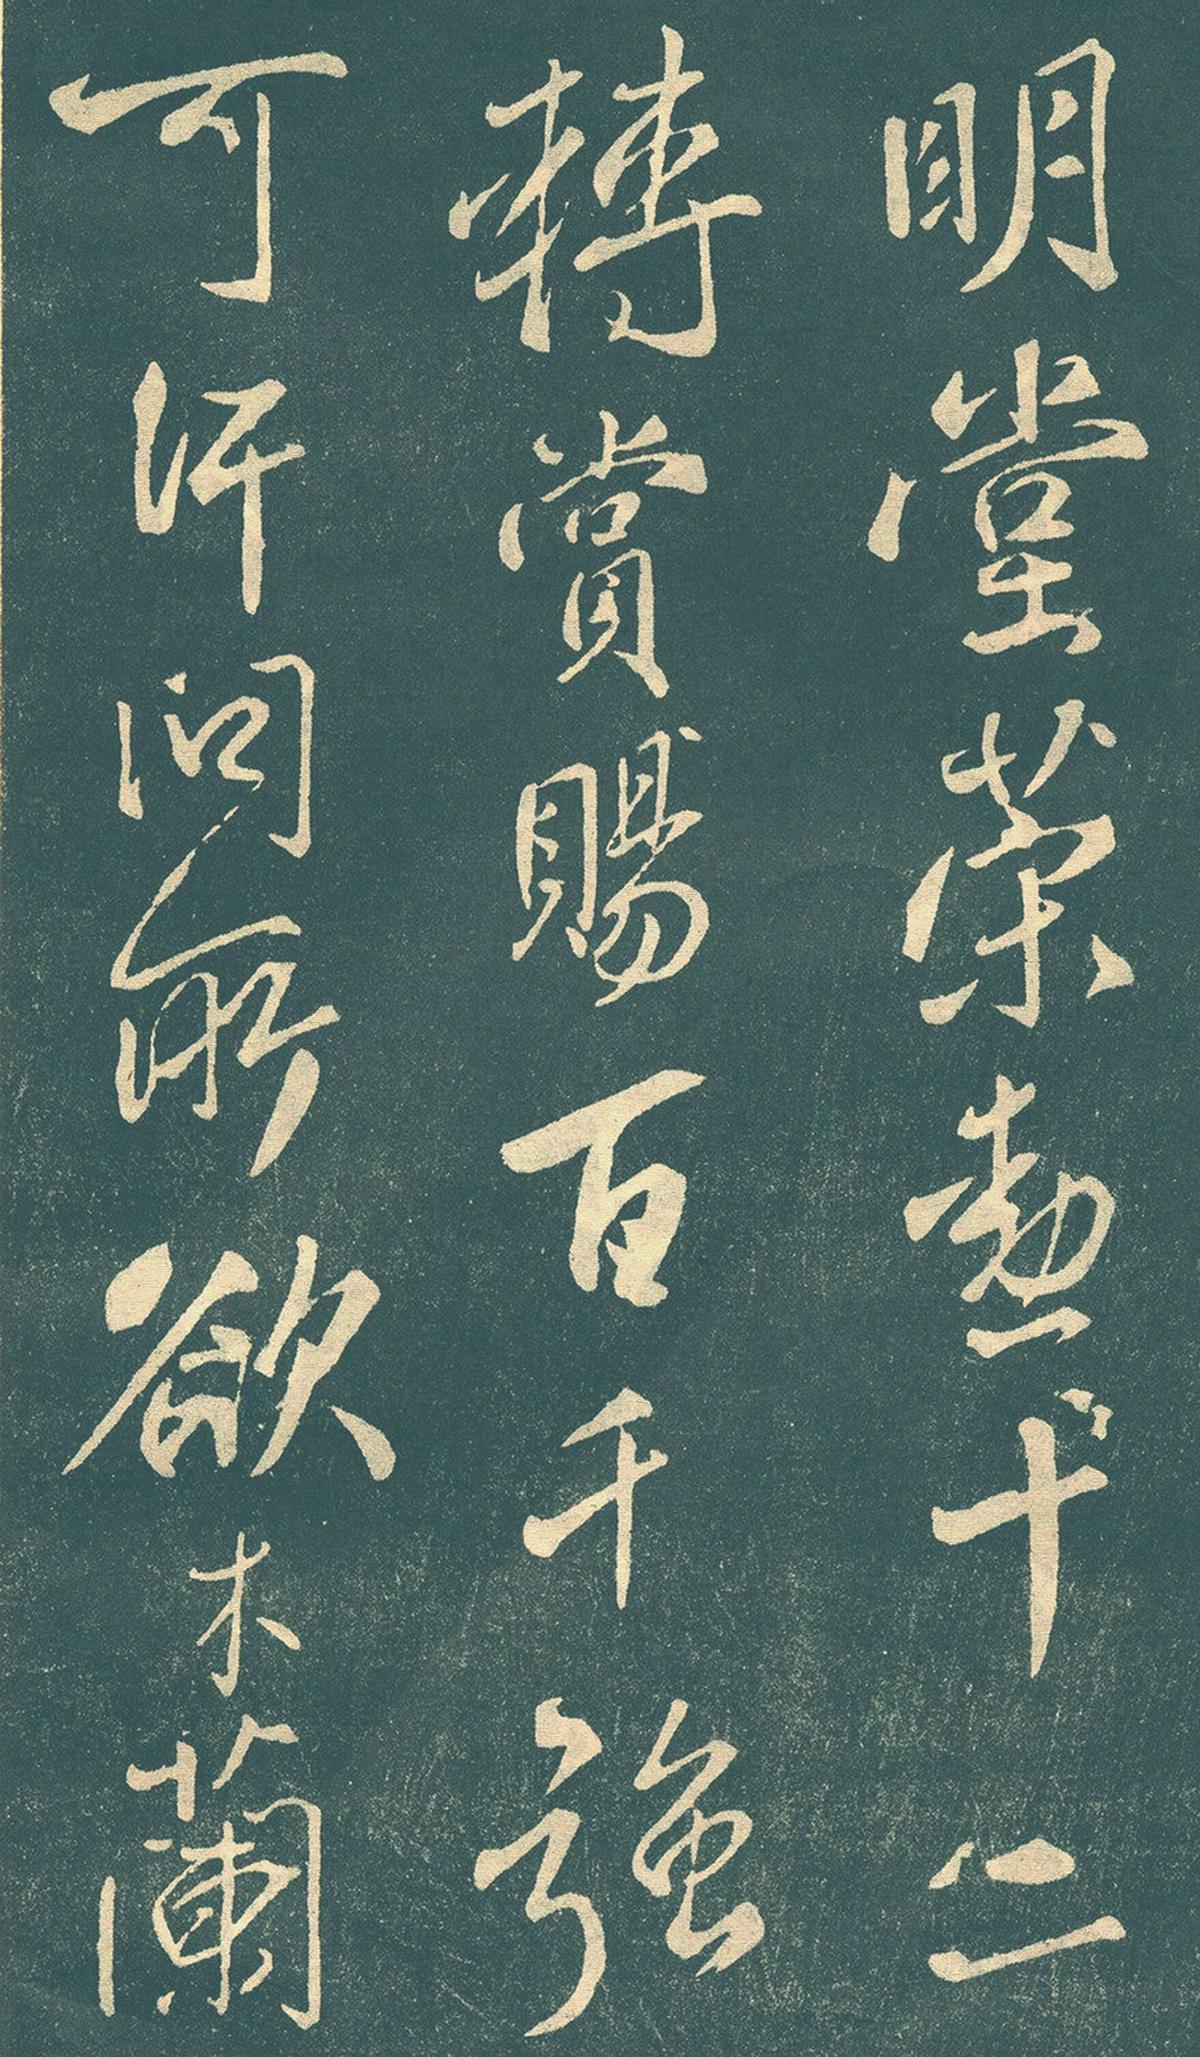 明堂策勳十二
轉賞賜百千強
可汗問所欲木蘭